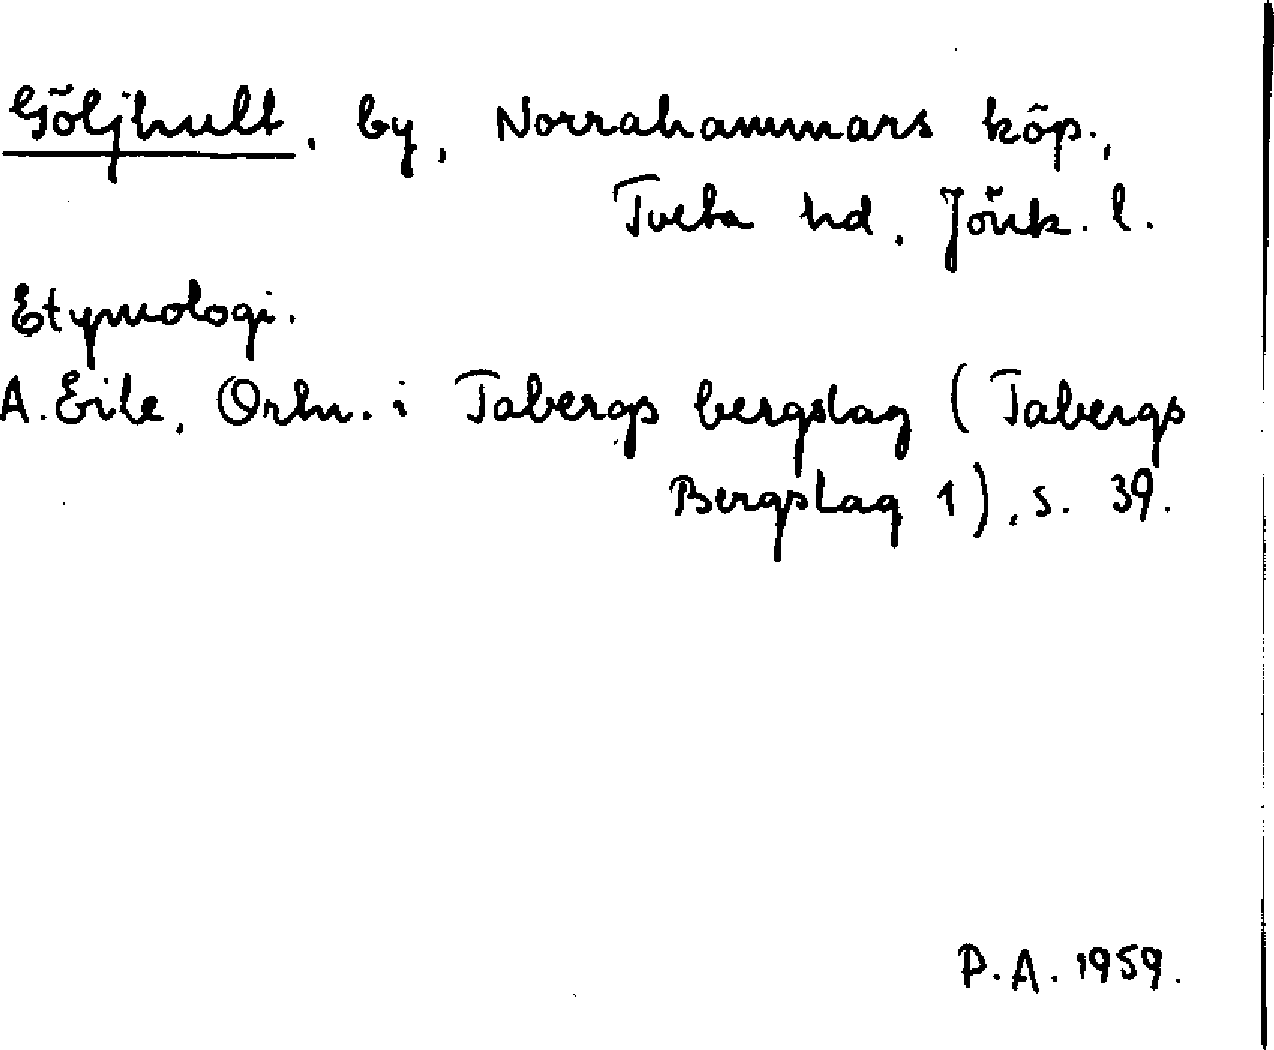 Göljhult, by, Norrahammars köp.,
Tveta hd, Jönk. l.
Etymologi.
A. Eile, Ortn. i Tabergs bergslag (Tabergs
Bergslag 1), s. 39.
P.A. 1959.